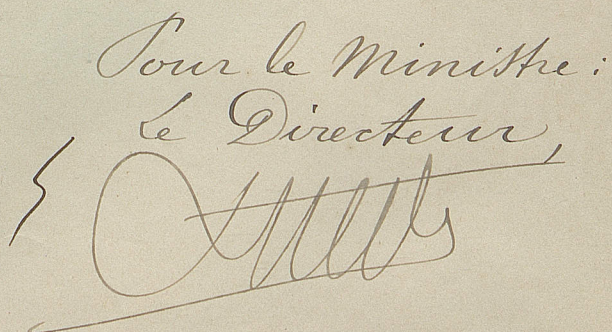 Pour le Ministre:
Le Directeur,